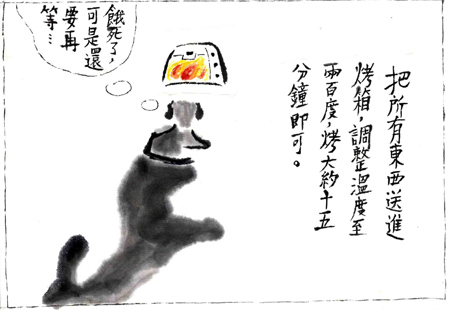 餓死了，
可是還
要再
等…
把所有東西送進
烤箱，調整溫度至
兩百度，烤大約十五
分鐘即可。